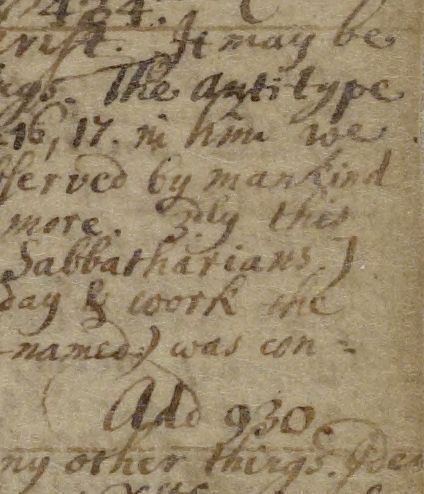 434.
It may be
The Antitype
16, 17. in him we
served by mankind
more. 3.ly this
Sabbatharians)
day & work the
named) was con=
Add 930.
ny other things.